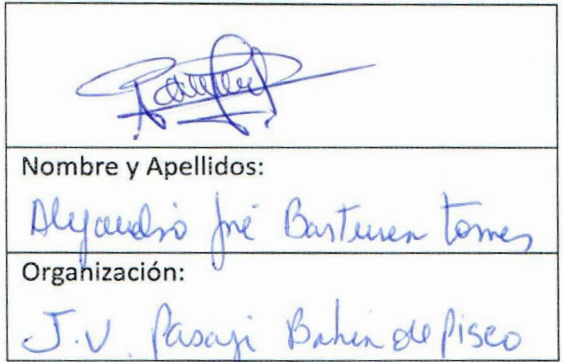 Nombre y Apellidos:
Alejandro José Torres
Organización:
J.V. Pasaje Bahia de Pisco